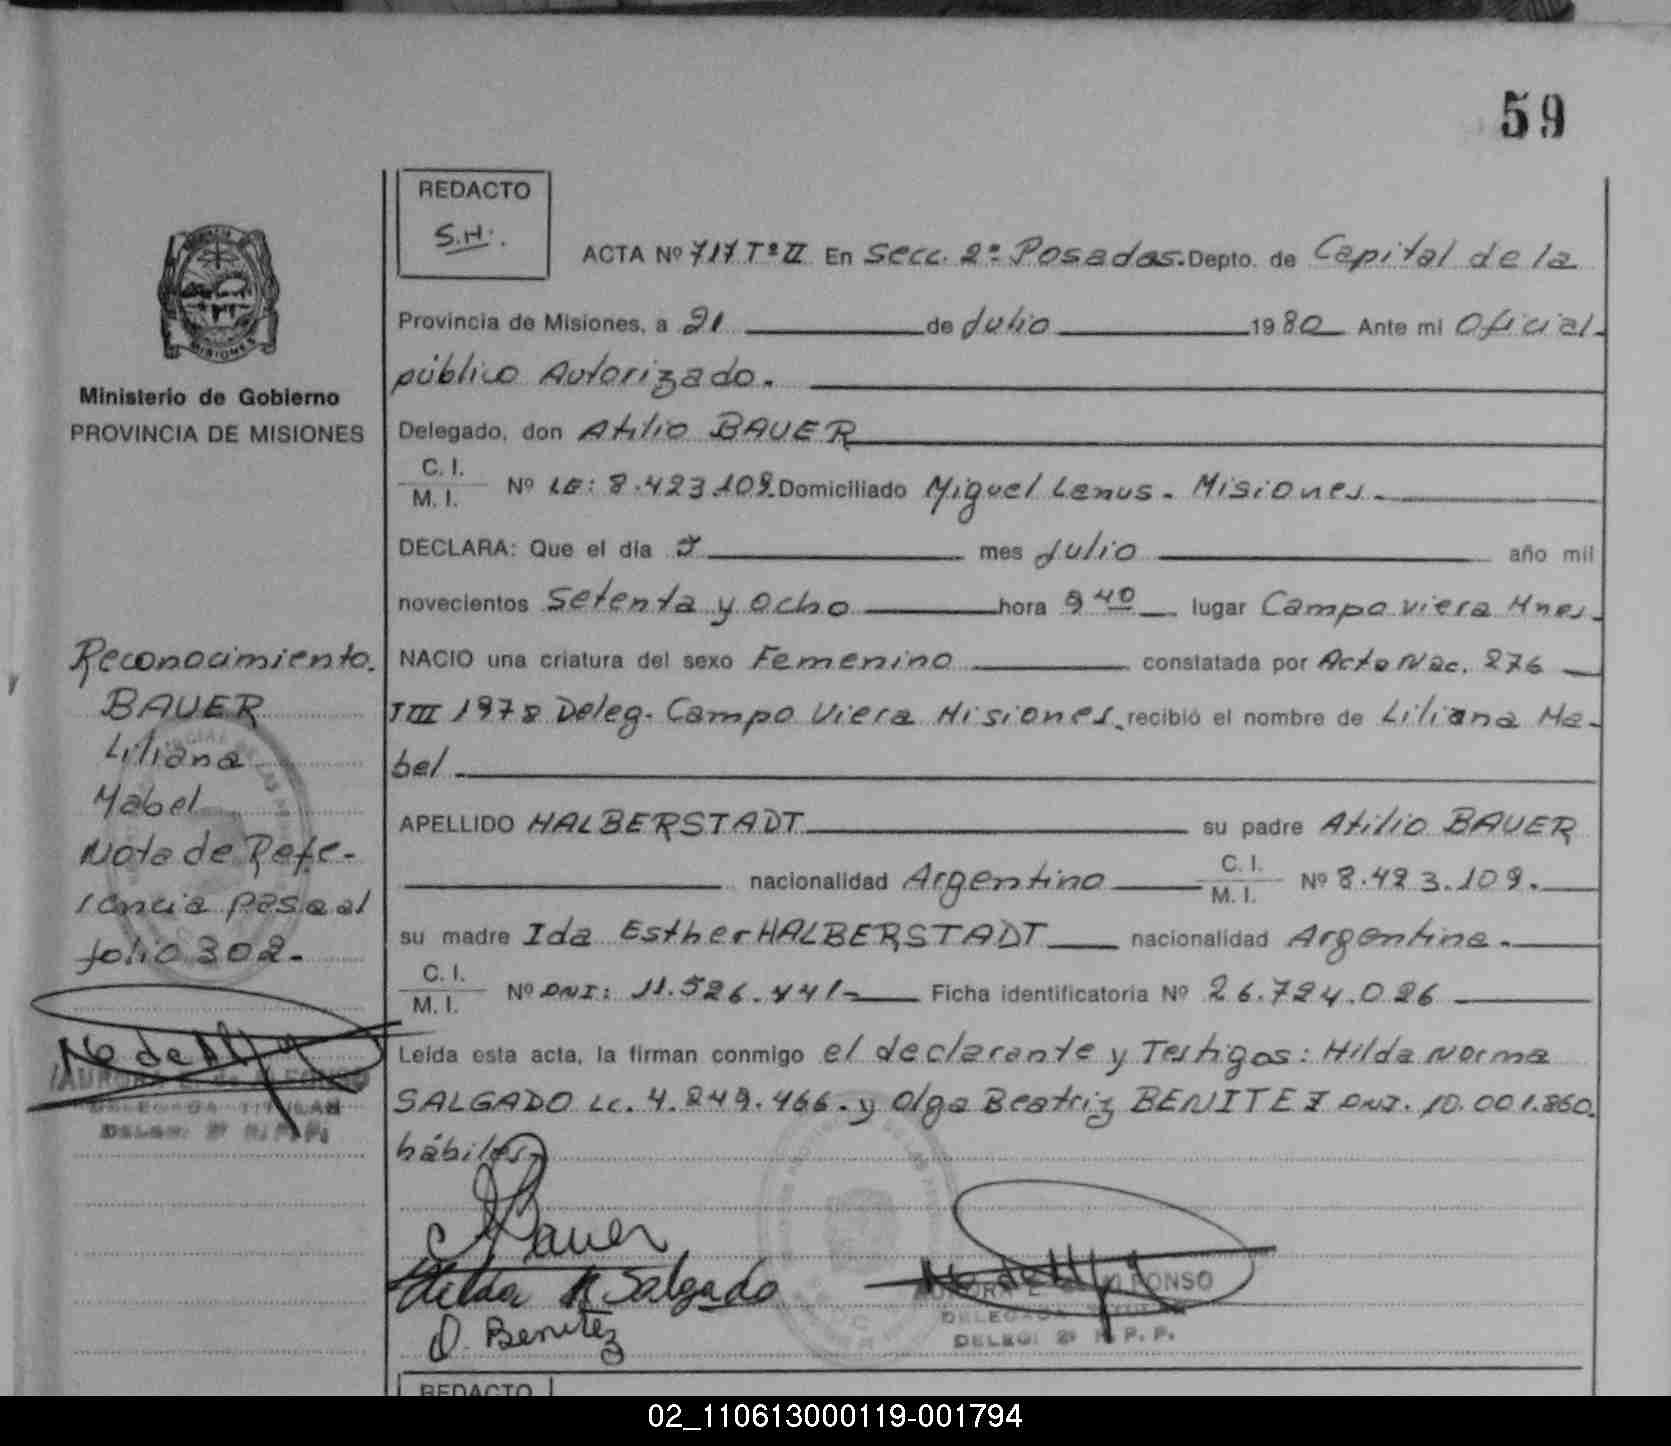 59
REDACTO
S.H.
ACTA Nº 717 Tº II En Secc. 2ª Posadas. Depto. de Capital de la
Provincia de Misiones, a 21 de Julio 1980 Ante mi Oficial
público Autorizado.
Delegado, don Atilio BAUER
C. I.
M. I. Nº LE: 8.423.109. Domiciliado Miguel Lanus - Misiones.
DECLARA: Que el día mes Julio año mil
novecientos Setenta y Ocho hora 9 40 lugar Campo Viera Mnes.
NACIO una criatura del sexo Femenino constatada por Acta Nac. 276
TIII 1978 Deleg. Campo Viera Misiones. recibió el nombre de Liliana Ma-
bel
APELLIDO HALBERSTADT su padre Atilio BAUER
nacionalidad Argentino C. I.
M. I. Nº 8.423.109.
su madre Ida Esther HALBERSTADT nacionalidad Argentina.
C. I.
M. I. Nº DNI: Ficha identificatoria Nº 26.724.026
Leída esta acta, la firman conmigo el declarante y Testigos: Hilda Norma
SALGADO LC. 4.849.466. y Olga Beatriz BENITEZ DNI. 10.001.860.
hábiles.
Bauer
Hilda N Salgado
O. Benitez
AURORA E. ALFONSO
DELEGADA TITULAR
DELEG: 2ª R. P. P.
REDACTO
MISIONES
Ministerio de Gobierno
PROVINCIA DE MISIONES
Reconocimiento.
BAUER
Liliana
Mabel
Nota de Refe-
rencia pasa al
folio 302.
DELEGADA TITULAR
DELEG: 2ª R. P. P.
02_110613000119-001794